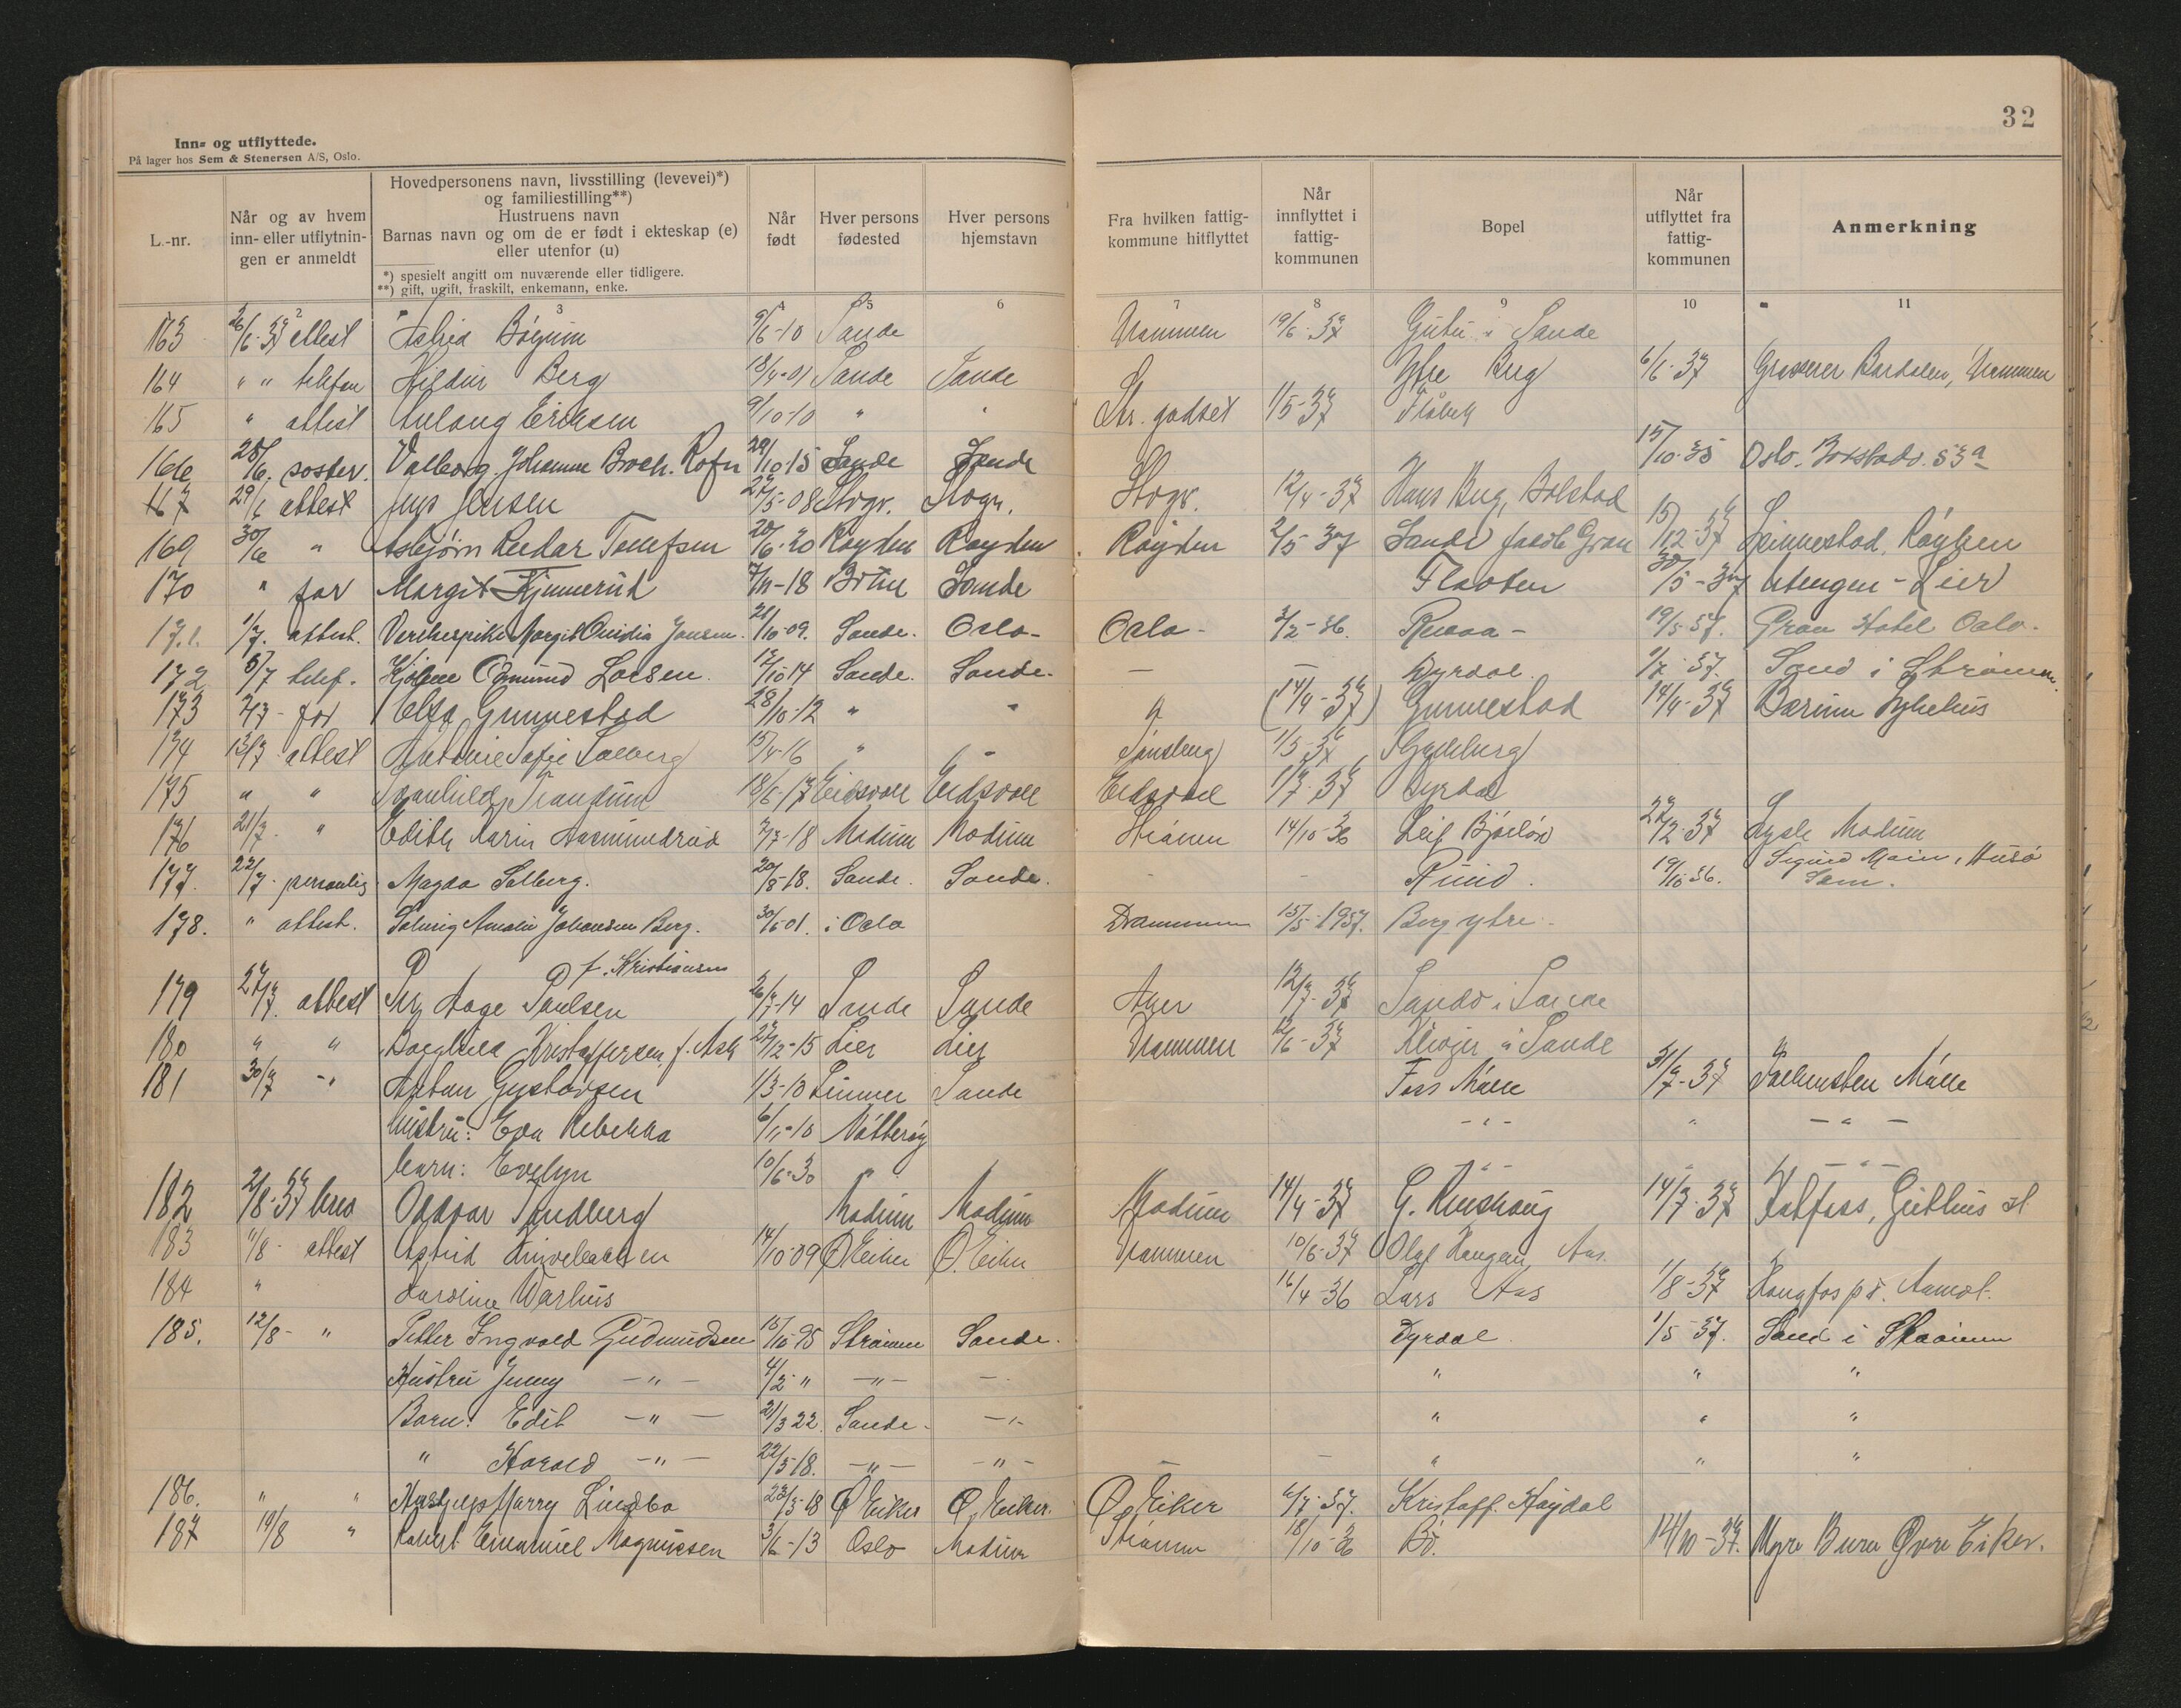 32
Inn- og utflyttede.
På lager hos Sem & Stenersen A/S, Oslo.
L.-nr.
Når og av hvem inn- eller utflytnin- gen er anmeldt
Hovedpersonens navn, livsstilling (levevei)*)
og familiestilling**)
Hustruens navn
Barnas navn og om de er født i ekteskap (e)
eller utenfor (u)
*) spesielt angitt om nuværende eller tidligere.
**) gift, ugift, fraskilt, enkemann, enke.
Når født
Hver persons fødested
Hver persons hjemstavn
Fra hvilken fattig- kommune hitflyttet
Når innflyttet i fattig- kommunen
Bopel
Når utflyttet fra fattig- kommunen
Anmerkning
2 3 4 5 6 7 8 9 10 11
163 26/6-37 attest Astrid 9/6-10 Sande Drammen 19/6-37 i Sande
164 " " telefon Hildur Berg 18/4-01 Sande Sande Ytre Berg 6/6-37 Grosserer Bardalen, Drammen
165 " attest Aslaug Eriksen 9/10-10 " " Str. godset 1/5-37
166 28/6. postv. Valborg Johanne Broch. 29/10-15 Sande Sande 15/10-35 Oslo. 53a
167 29/6 attest Jens Jensen 27/5-08 Skogr. Skogr. Skogr. 12/4-37 Hans Berg, Bolstad
169 30/6 " Asbjørn Reidar Tollefsen 20/6-20 Røyken Røyken Røyken 2/5-37 Sande Gran 15/12-37 Spinnestad, Røyken
170 " far Margit Kjinnerud 7/11-18 Botne Sande Flaaten 30/5-37 Utengen - Lier
171. 1/7. attest. Margit Ovidia Jensen. 21/10-09. Sande. Oslo- Oslo- 3/2-36. Revaa- 19/5-37. Gran Hotel Oslo.
172 5/7 telef. Osmund Larsen. 17/10-14 Sande. Sande. - - Dyrdal. 1/7-37. Sand i Strømm.
173 7/7- far Elsa Gunnestad 28/10-12 " " " (14/4-37) Gunnestad 14/4-37 Bærum Sykehus
174 13/7 attest Sofie Solberg 15/4-16 " " Tønsberg 1/5-37
175 " " Trandum 18/6-17 Eidsvoll Eidsvoll Eidsvoll 1/7-37 Dyrdal
176 21/7. " Edith Karin Aasmundrud 7/7-18 Modum Modum Strømm 14/10-36 Leif 27/2-37 Modum
177. 22/7- personlig Magda Solberg. 20/8-18. Sande. Sande. - - Ruud. 19/10-36. Sigurd Moen, Husø Sem.
178. " attest. Solveig Amalie Johansen Berg. 30/6-01. i Oslo Drammen 15/5-1937. Berg ytre.
f. Kristiansen
179 27/7. attest Per Aage Paulsen 26/7-14 Sande Sande 12/7-37 Sande i Sande
180 " " Borghild Kristoffersen, f. Ask 27/12-15 Lier Lier Drammen 12/6-37 i Sande
181 30/7 -" Anton Gustavsen 1/3-10 Sande Foss Mølle 31/7-37 Mølle
hustru: Eva Rebekka 6/11-10 Nøtterøy -"- " -"-
barn: Evelyn 10/6-30 " -"- " -"-
182 2/8-37 brev Oddvar Sandberg Modum Modum Modum 14/4-37 G. 14/7-37 Katfoss, Geithus st
183 11/8- attest Astrid 14/10-09 Ø Eiker Ø. Eiker Drammen 10/6-37 Olaf Haugan Aas.
184 " Karoline Warhus 16/4-36 Lars Aas 1/8-37
185. 12/8- " Petter Ingvald Gudmundsen 15/10-95 Strømm Sande. Dyrdal 1/5-37. Sand i Strømm
Hustru Jenny -"- 4/2-" -"- -. " " "
Barn: Edit -"- 21/3 22. Sande- -"- " " "
" Harald -"- 22/5-18. -"- -"- - - " " "
186. " " Harry Lindbo 23/5-18 Ø Eiker Ø. Eiker. Ø Eiker 6/7-37. Kristoff. Høydal
187 14/8 " Emanuel Magnussen 3/6-13 Oslo Modum Strømm 18/10-36 Bø. 14/10-37. Myra Bure Øvre Eiker.